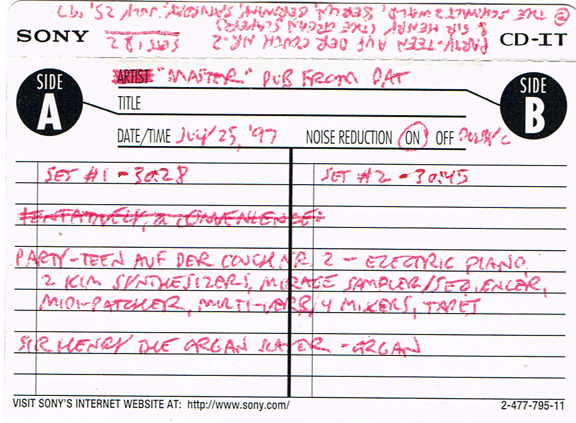 PARTY-TEEN AUF DER COUCH NR. 2
& SIR HENRY (THE ORGAN SLAYER)
@ THE SCHMALTZWALD, BERLIN, GERMANY, SATURDAY, JULY 25, '97
SETS 1 & 2
SONY CD-IT
SIDE A
SIDE B
ARTIST "MASTER" DUB FROM DAT
TITLE
DATE/TIME July 25, '97 NOISE REDUCTION ON OFF DOLBY C
SET #1 - 30:28 SET #2 - 30:45
TENTATIVELY, a CONVENIENCE:
PARTY-TEEN AUF DER COUCH NR. 2 - ELECTRIC PIANO,
2 KIM SYNTHESIZERS, MIRAGE SAMPLER/SEQUENCER,
MIDI-PATCHER, MULTI-VERB, 4 MIXERS, TAPES
SIR HENRY DIE ORGAN SLAYER - ORGAN
VISIT SONY'S INTERNET WEBSITE AT: http://www.sony.com/ 2-477-795-11